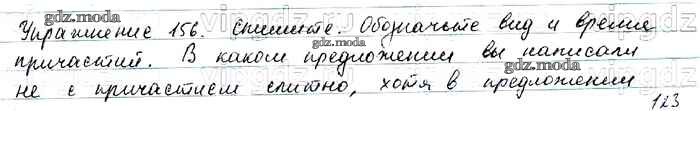 Упражнение 156. Спишите. Обозначьте вид и время
причастий. В каком предложении вы написали
не с причастием слитно, хотя в предложении
123
gdz.moda
gdz.moda
gdz.moda
gdz.moda